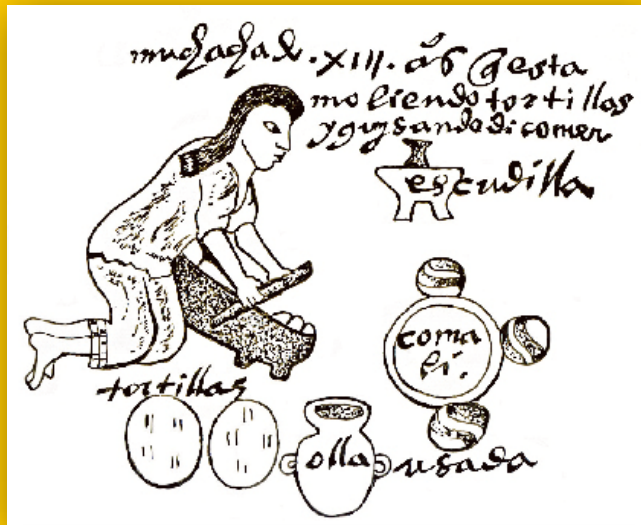 muchacha de .XIII. años q̃ esta
moliendo tortillas
y guysando di comer
escudilla
comali.
tortillas
olla
usada